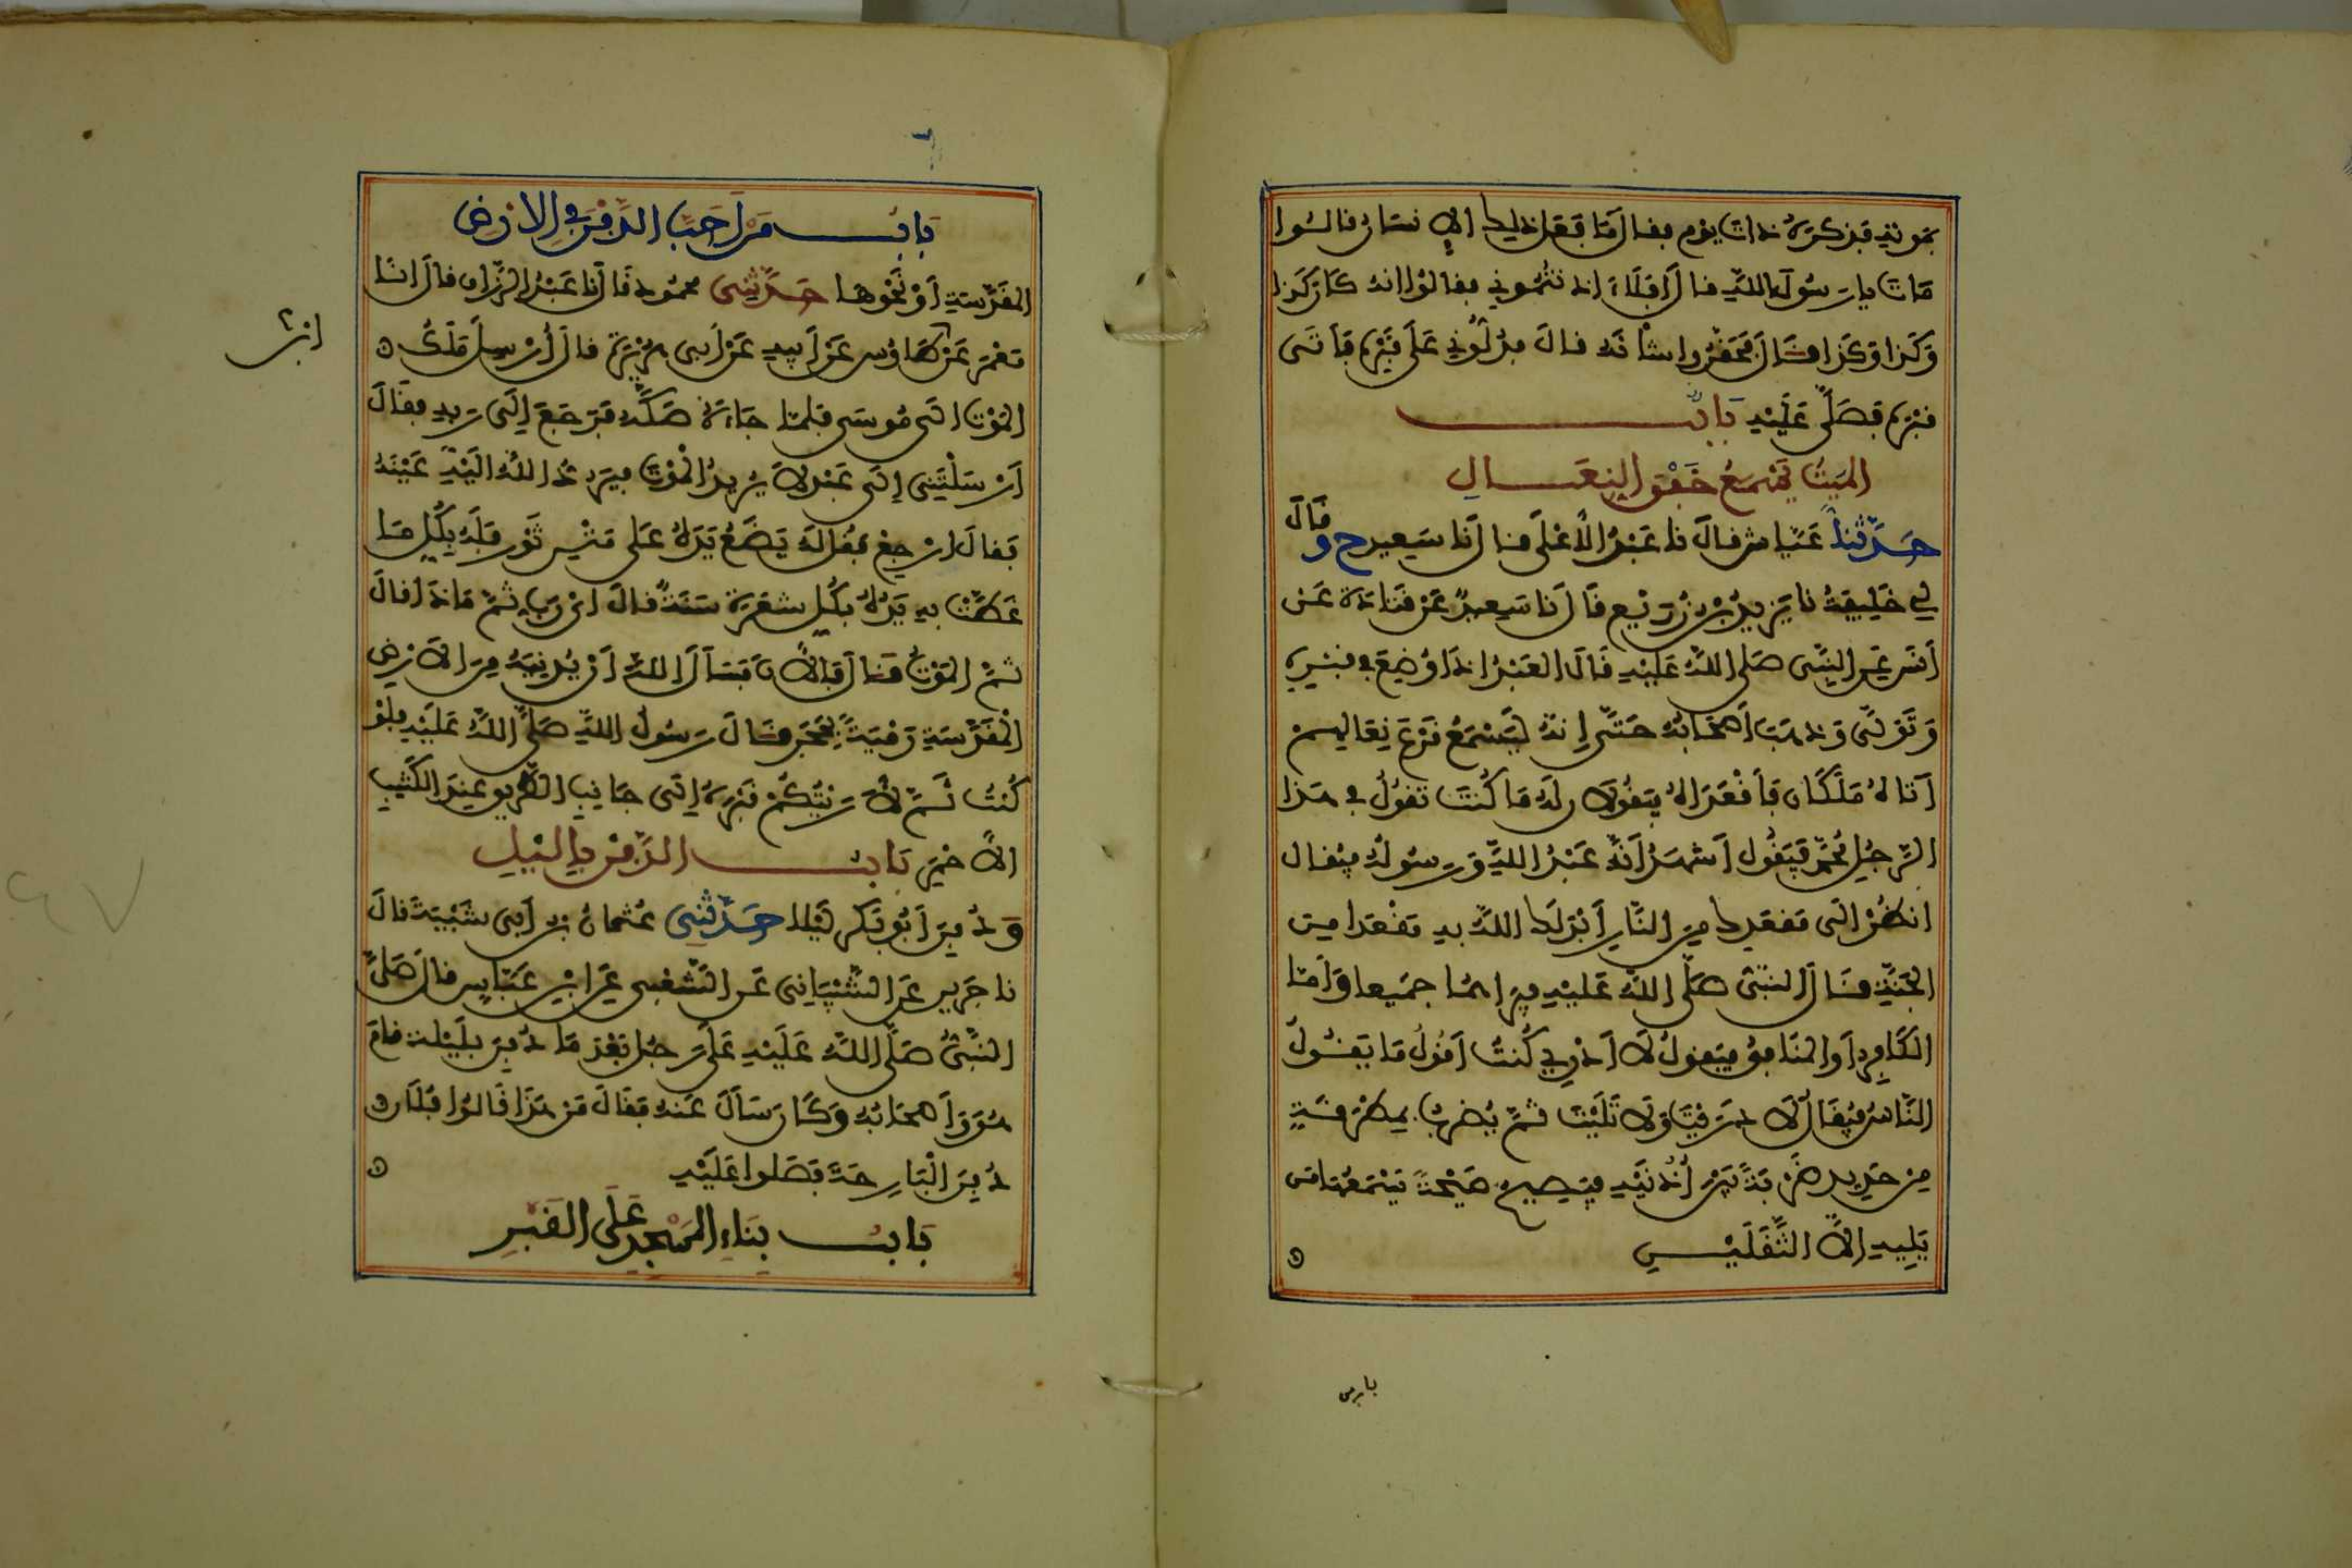 بموته فذكره ذات يوم فقال ما فعل ذلك الإنسان قالوا
مات يا رسول الله قال أفلا اذنتموني فقالوا انه كان كذا
وكذا وكذا قال فحقروا شأنه قال فدلوني على قبره فأتى
قبره فصلى عليه باب
الميت يسمع خفق النعال
حدثنا عياش قال نا عبد الأعلى قال نا سعيد ح وقال
لي خليفة نا يزيد بن زريع قال نا سعيد عن قتادة عن
أنس عن النبي صلى الله عليه قال العبد اذا وضع في قبره
وتولى وذهب أصحابه حتى إنه ليسمع قرع نعالهم
أتاه ملكان فأقعداه فيقولان له ما كنت تقول في هذا
الرجل محمد فيقول أشهد أنه عبد الله ورسوله فيقال
انظر الى مقعدك من النار أبدلك الله به مقعدا من
الجنة قال النبي صلى الله عليه فيراهما جميعا وأما
الكافر أو المنافق فيقول لا أدري كنت أقول ما يقول
الناس فيقال لا دريت ولا تليت ثم يضرب بمطرقة
من حديد ضربة بين أذنيه فيصيح صيحة يسمعها من
يليه الا الثقلين
باب من
باب من أحب الدفن في الارض
المقدسة أو نحوها حدثني محمود قال نا عبد الرزاق قال انا
معمر عن ابن طاوس عن أبيه عن أبي هريرة قال أرسل ملك
الموت الى موسى فلما جاءه صكه فرجع إلى ربه فقال
أرسلتني إلى عبد لا يريد الموت فرد الله اليه عينه
فقال ارجع فقل له يضع يده على متن ثور فله بكل ما
غطت به يده بكل شعرة سنة قال اي رب ثم ماذا قال
ثم الموت قال فالآن فسأل الله أن يدنيه من الارض
المقدسة رمية بحجر قال رسول الله صلى الله عليه فلو
كنت ثم لأريتكم قبره إلى جانب الطريق عند الكثيب
الأحمر باب الدفن بالليل
ودفن أبو بكر ليلا حدثني عثمان بن أبي شيبة قال
نا جرير عن الشيباني عن الشعبي عن ابن عباس قال صلى
النبي صلى الله عليه على رجل بعد ما دفن بليلة قام
هو وأصحابه وكان سأل عنه فقال من هذا قالوا فلان
دفن البارحة فصلوا عليه
باب بناء المسجد على القبر
٤٧